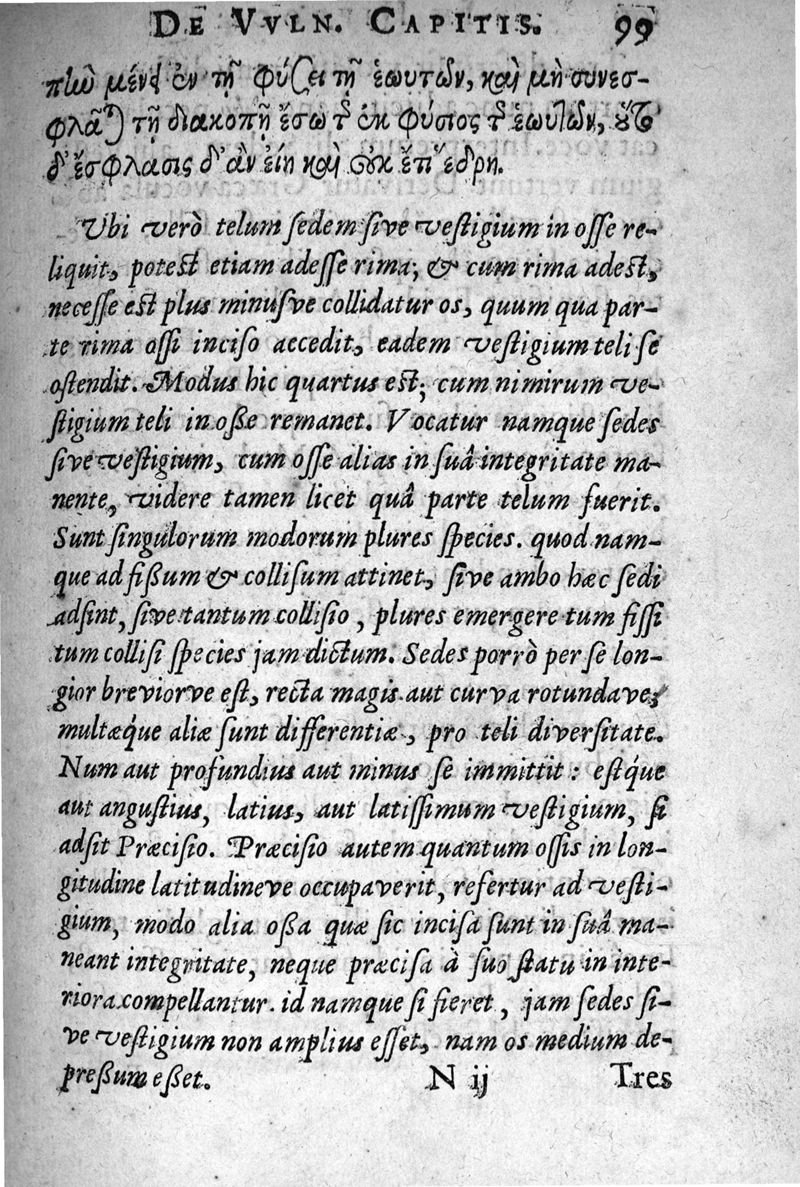 DE VVLN. CAPITIS. 99
μένῃ ἐν τῇ φύσει τῇ ἑωυτῶν, καὶ μὴ συνεσ-
φλᾷ τῇ διακοπῇ ἔσω ἐκ φύσιος ἑωυτῶν, οὕτω
δ' ἔσφλασις δ' ἂν εἴη καὶ οὐκ ἔτι ἕδρη.
Ubi verò telum sedem sive vestigium in osse re-
liquit, potest etiam adesse rima; & cum rima adest,
necesse est plus minusve collidatur os, quum qua par-
te rima ossi inciso accedit, eadem vestigium teli se
ostendit. Modus hic quartus est; cum nimirum ve-
stigium teli in oße remanet. Vocatur namque sedes
sive vestigium, cum osse alias in suâ integritate ma-
nente, videre tamen licet quâ parte telum fuerit.
Sunt singulorum modorum plures species. quod nam-
que ad fißum & collisum attinet, sive ambo hæc sedi
adsint, sive tantum collisio, plures emergere tum fissi
tum collisi species jam dictum. Sedes porrò per se lon-
gior breviorve est, recta magis aut curva rotundave;
multæq́ue aliæ sunt differentiæ, pro teli diversitate.
Num aut profundius aut minus se immittit: estq́ue
aut angustius, latius, aut latissimum vestigium, si
adsit Præcisio. Præcisio autem quantum ossis in lon-
gitudine latitudineve occupaverit, refertur ad vesti-
gium, modo alia oßa quæ sic incisa sunt in suâ ma-
neant integritate, neque præcisa à suo statu in inte-
riora compellantur. id namque si fieret, jam sedes si-
ve vestigium non amplius esset, nam os medium de-
preßum eßet. N ij Tres